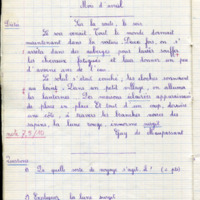 Mois d'avril
Sur la route, le soir
Le soir venait. Tout le monde dormait
maintenant dans la voiture. Deux fois, on s'
arrêta dans des auberges pour laisser souffler
les chevaux fatigués et leur donner un peu
d'avoine avec de l'eau.
Le soleil s'était couché, les cloches sonnaient
au Dans un petit village, on alluma
les lanternes. Des maisons apparaissaient de
place en place. Et tout d'un coup, derrière
une côte, à travers les branches noires des
sapins, la lune rouge, énorme, surgit.
Guy de Maupassant
Questions
De quelle sorte de voyage s'agit-il ?
Expliquez la lune surgit